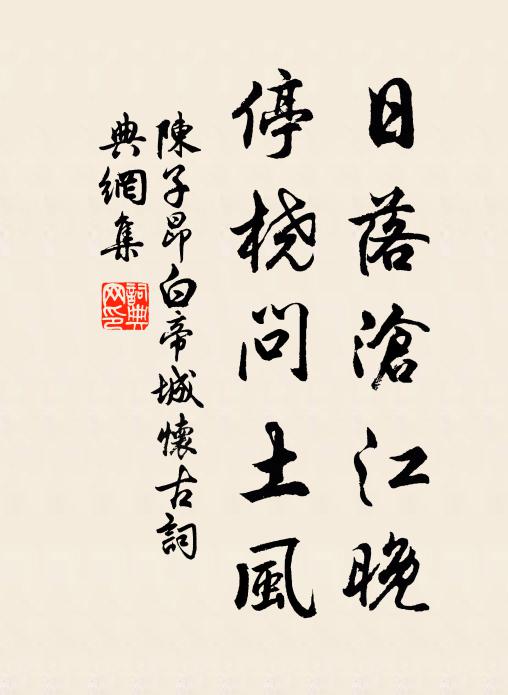 日落滄江晚
停桡問土風
陳子昂白帝城懷古詞
典網集
詞典网印